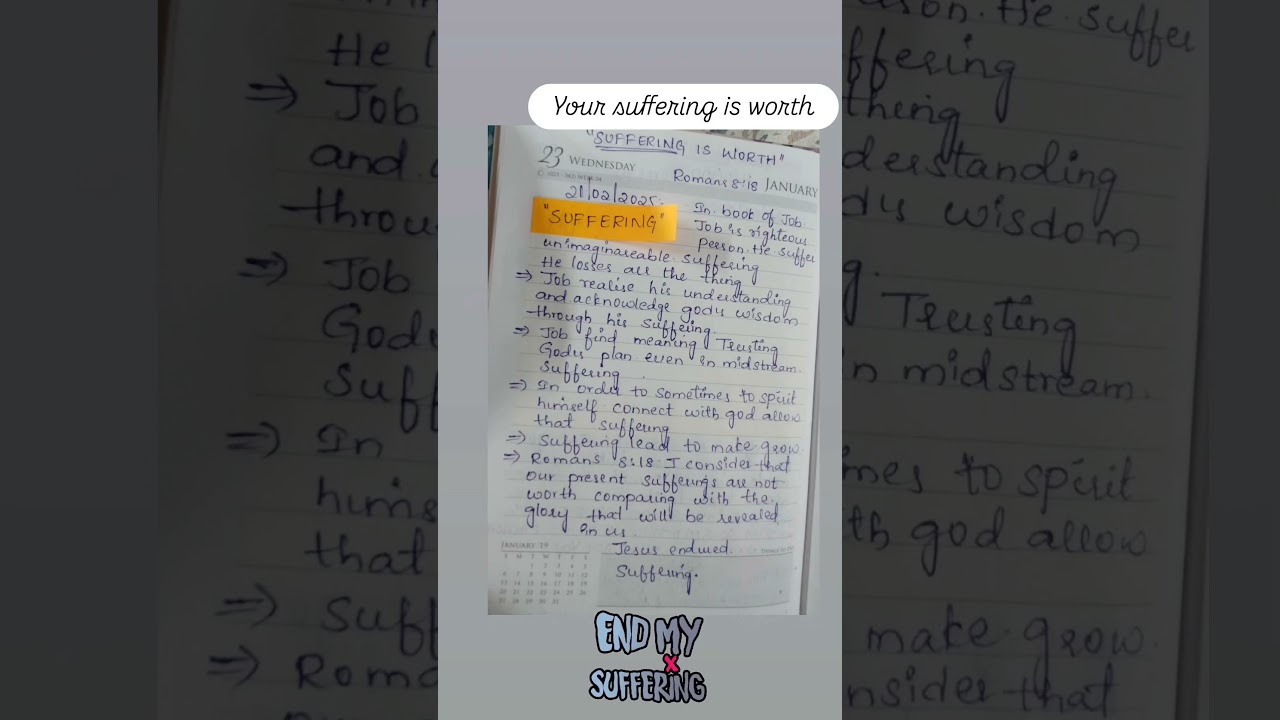 Your suffering is worth
"SUFFERING IS WORTH"
23 WEDNESDAY
Romans 8:18 JANUARY
21/02/2025.
"SUFFERING"
In book of Job
Job is righteous
person. He suffer
unimaginareable suffering
He losses all the thing
⇒ Job realise his understanding
and acknowledge gody wisdom
through his suffering.
⇒ Job find meaning Trusting
Gody plan even in midstream.
Suffering.
⇒ In order to sometimes to spirit
himself connect with god allow
that suffering
⇒ Suffering lead to make grow.
⇒ Romans 8:18 I consider that
our present sufferings are not
worth comparing with the
glory that will be revealed
in us.
Jesus endured.
Suffering.
JANUARY 19
S M T W T F S
1 2 3 4 5
6 7 8 9 10 11 12
13 14 15 16 17 18 19
20 21 22 23 24 25 26
27 28 29 30 31
END MY
SUFFERING